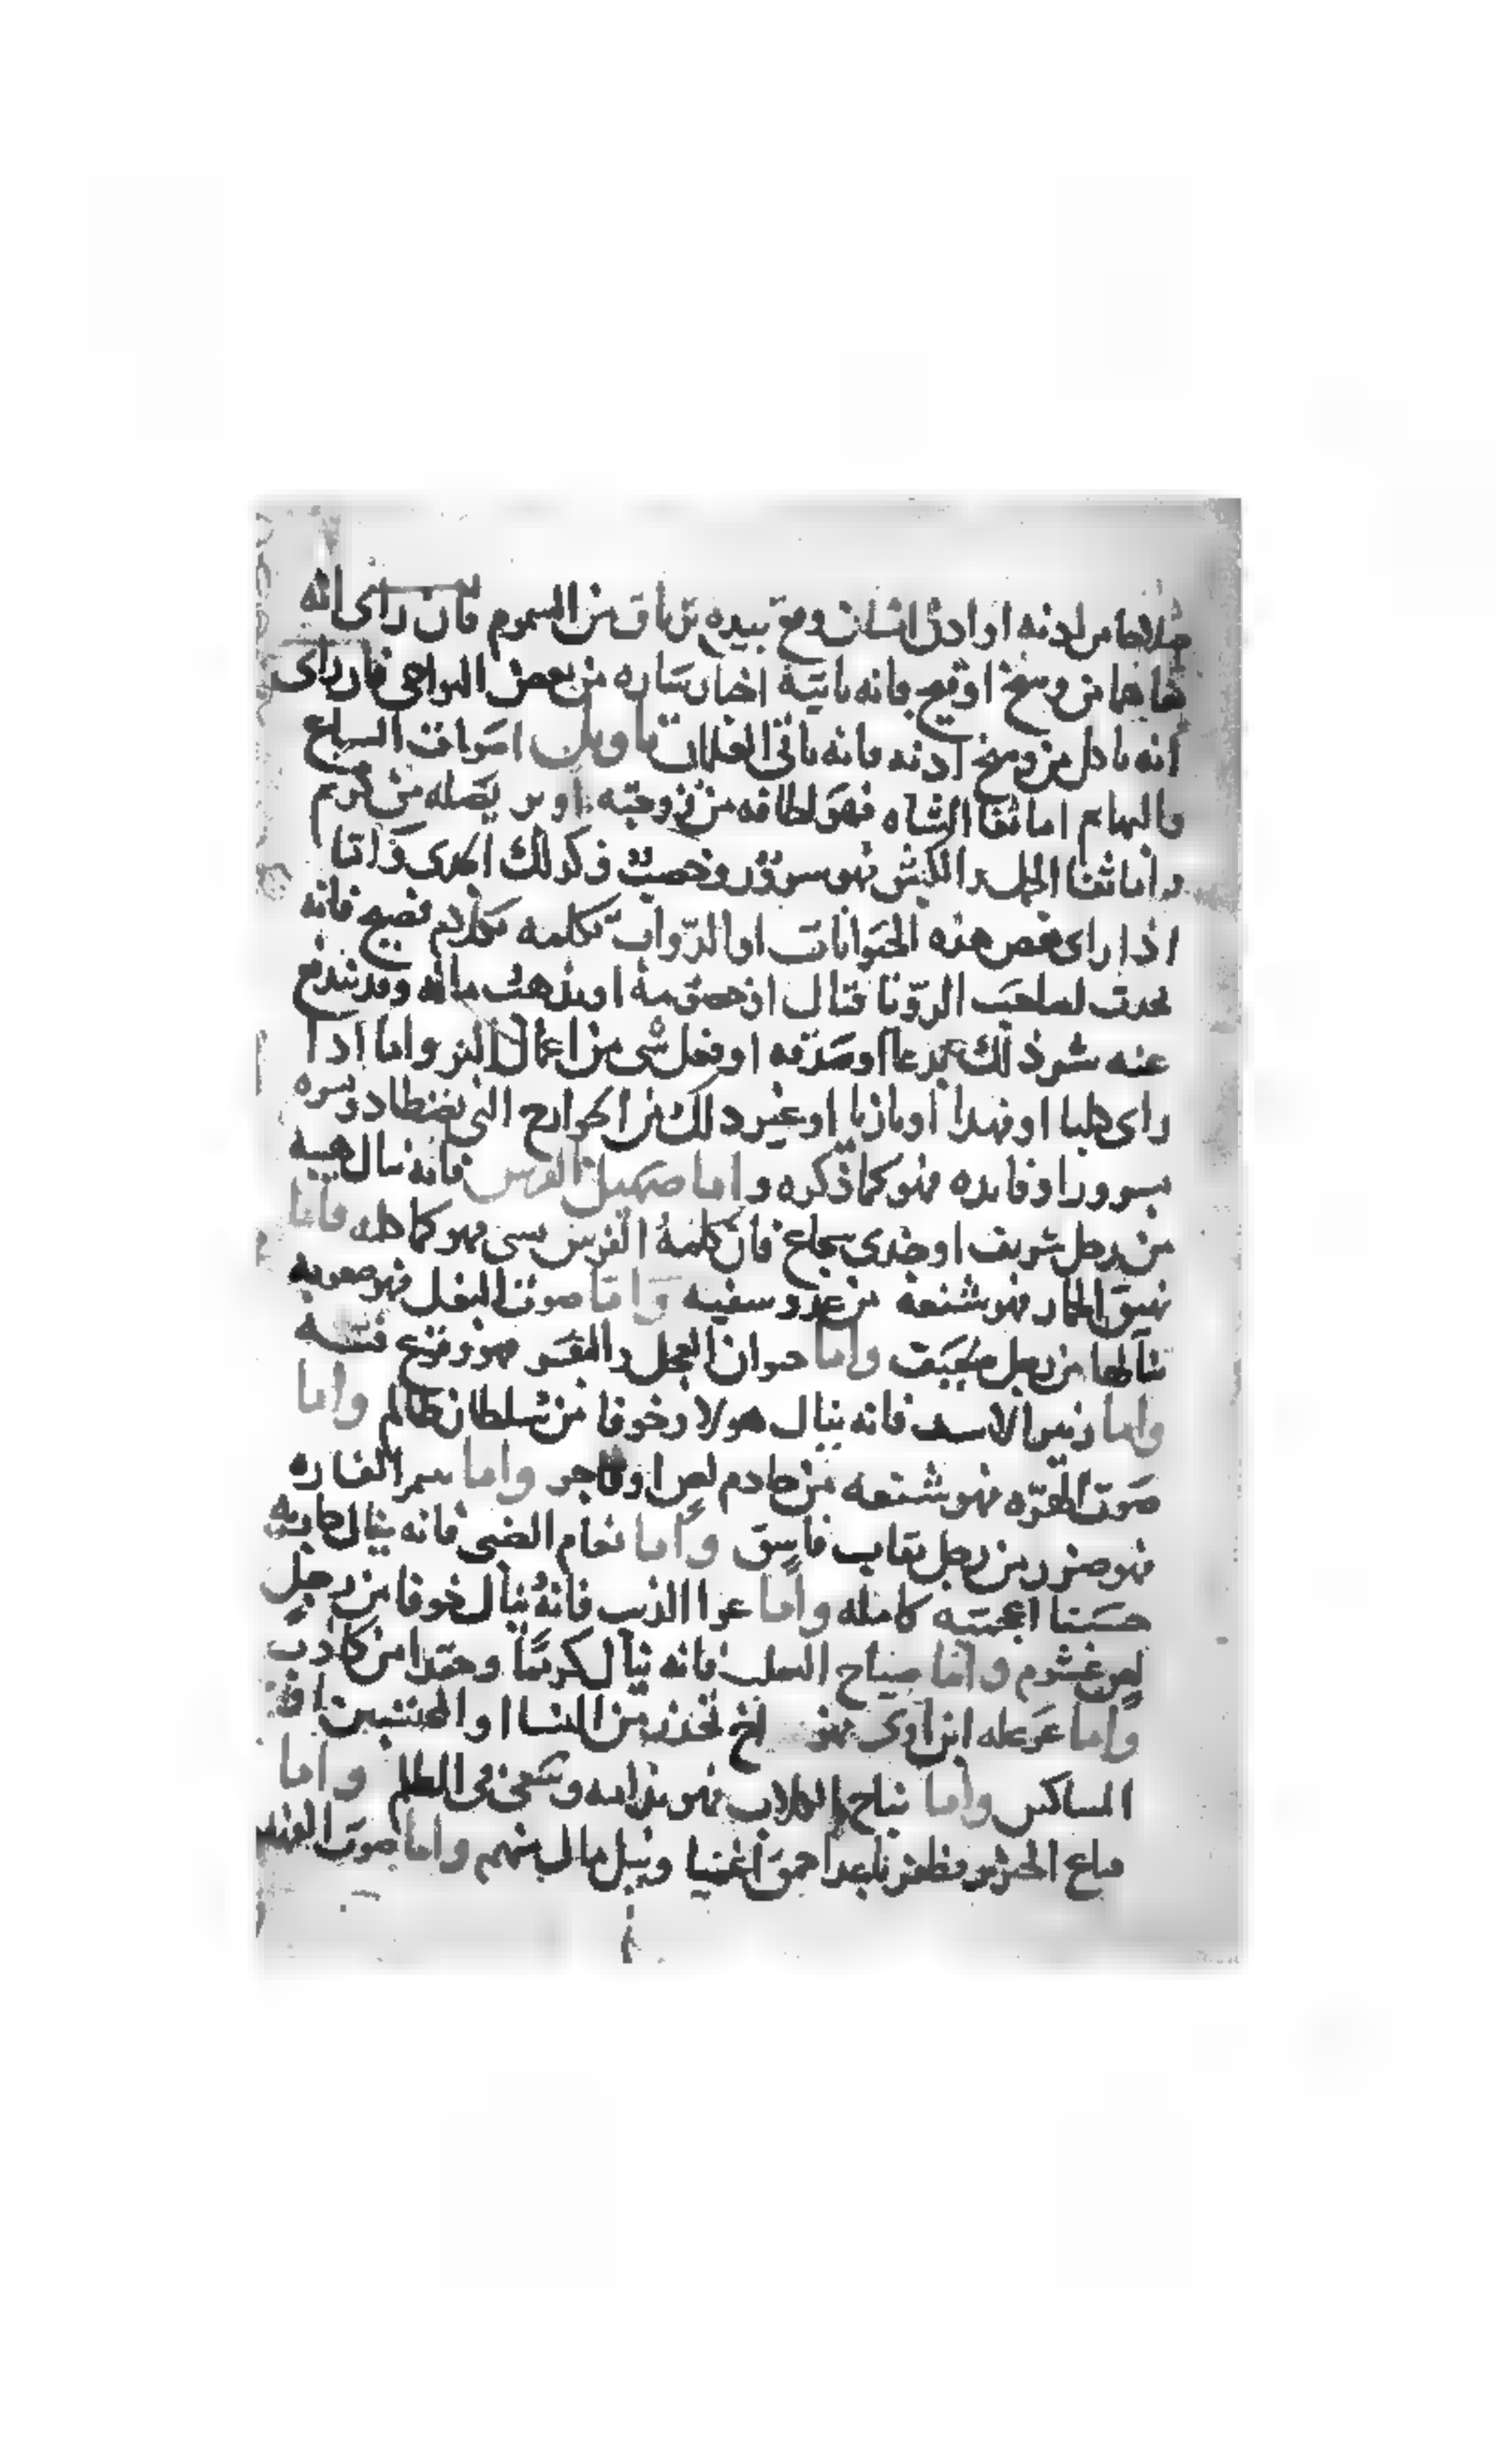 صلاحا من اذنه او اذن انسان وقع بيده ترياق من السموم فان راى انه
نقاهما من وسخ او قيح فانه ياتيه اخبار ساره من بعض النواحى فان راى
انه ياكل من وسخ اذنه فانه ياتى الغلمان تاويل اصوات السباع
والبهايم اما ثغا الشاه فهو لطافه من زوجته او بر يصله من كريم
واما ثغا الجمل والكبش فهو سرور وخصب وكذلك الجدى واما
اذا راى بعض هذه الحيوانات او الدواب تكلمه بكلام فصيح فانه
يحدث لصاحب الرويا قتال او خصومة او يذهب ماله وقد يندفع
عنه شر ذلك بدعا او صدقه او فعل شى من اعمال البر واما اذا
راى كلبا او فهدا او بازيا او غير ذلك من الجوارح التى تصطاد يسره
بسرور او فايده فهو كما ذكره واما صهيل الفرس فانه ينال هيبه
من رجل شريف او جندى شجاع فان كلمه الفرس بشى فهو كما كلمه فاما
نهيق الحمار فهو شنعه من عدو سفيه واما صوت البغل فهو صعوبه
ينالها من رجل صعب واما خوار العجل والبقر فهو وقوع فتنه
واما زئير الاسد فانه ينال هولا وخوفا من سلطان ظالم واما
صوت الهره فهو شنعه من خادم لص او فاجر واما الفاره
فهو ضرر من رجل نقاب فاسق واما نغام الضبى فانه ينال جاريه
حسنا اعجميه كامله واما عوا الذيب فانه ينال خوفا من رجل
لص غشوم واما صياح الثعلب فانه ينال كربا وحقدا من كاذب
واما عوعله ابن اوى فهو من النسا او المحتسبين
المساكين واما نباح الكلاب فهو ندامه وسعى فى الظلم واما
صياح الخنزير فظفر باعدا حمق اغنيا ونيل مال منهم واما صوت الفهد